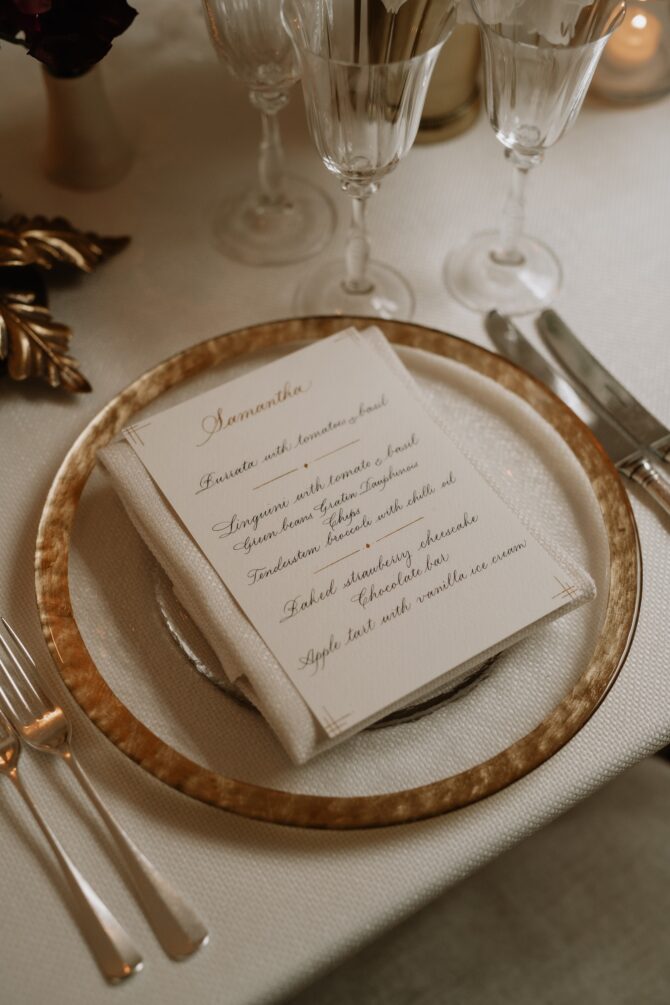 Samantha
Burrata with tomatoes & basil
Linguini with tomato & basil
Green beans Gratin Dauphinous
Chips
Tenderstem broccoli with chilli oil
Baked strawberry cheesecake
Chocolate bar
Apple tart with vanilla ice cream